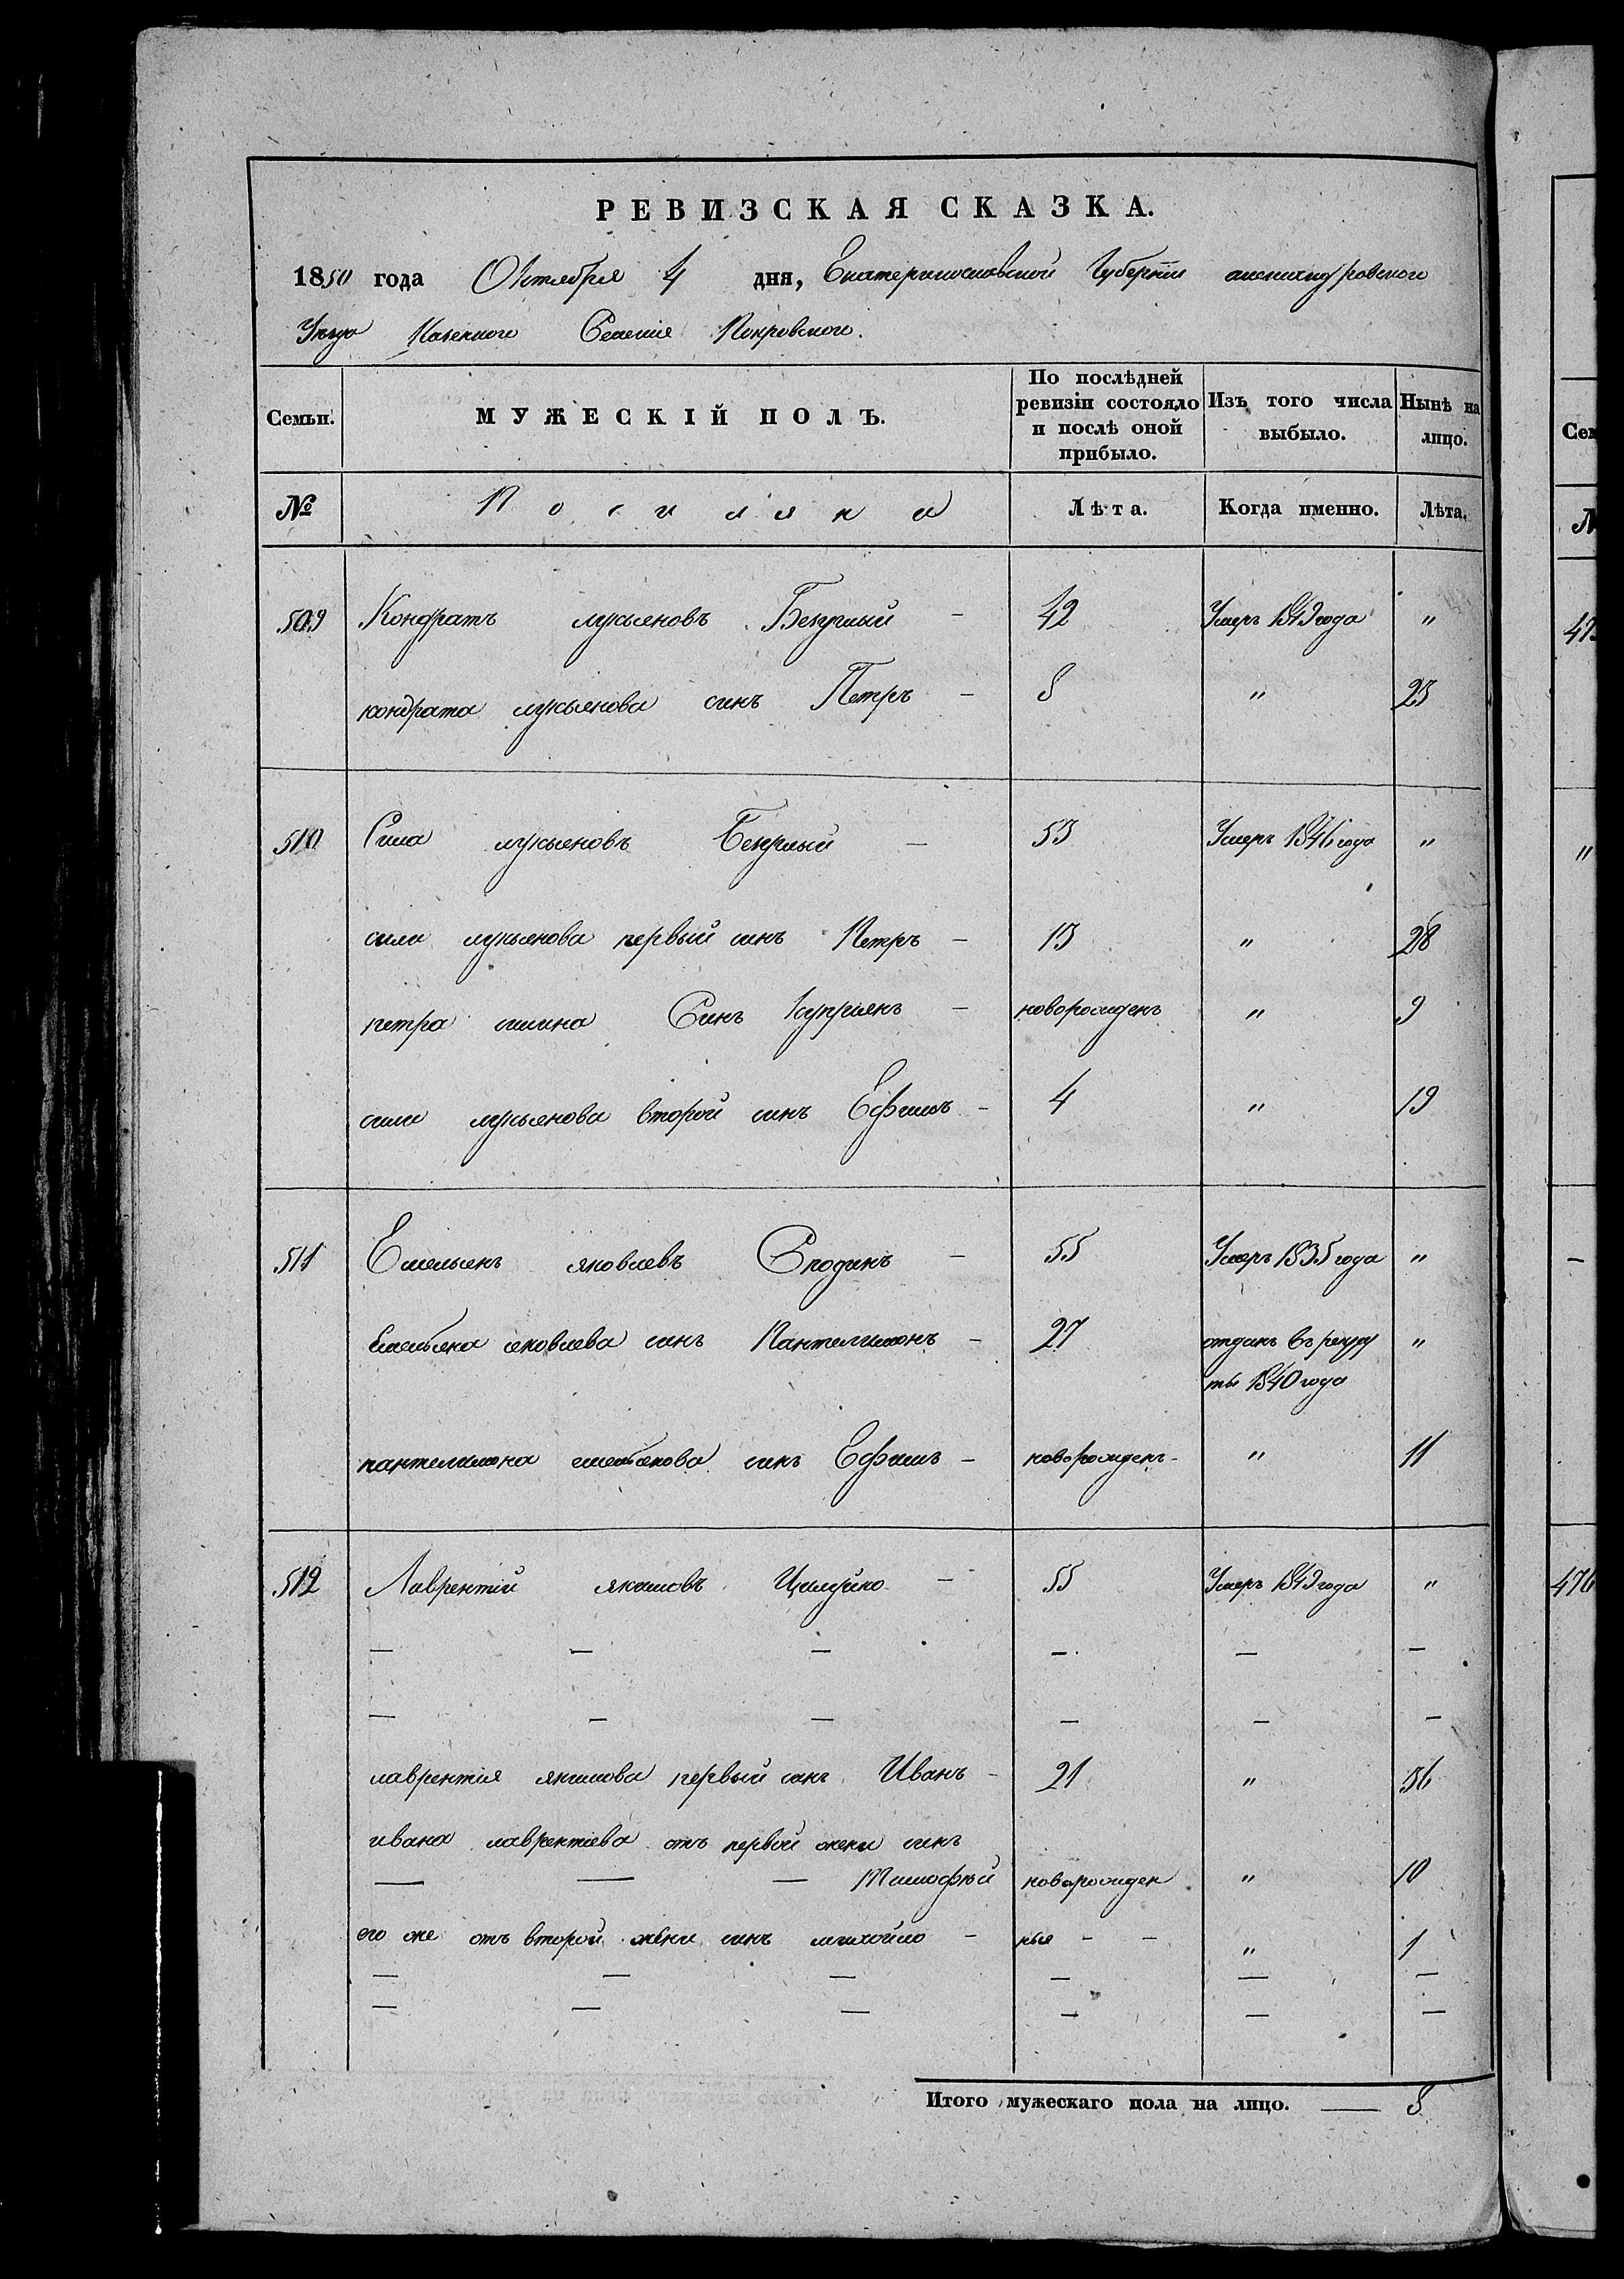 РЕВИЗСКАЯ СКАЗКА.
1850 года Октября 4 дня, Екатеринославской Губернiи александровского
Уезда Казенного Селенiя Покровского.
Семьи. МУЖЕСКIЙ ПОЛЪ. По послѣдней ревизiи состояло и послѣ оной прибыло. Изъ того числа выбыло. Нынѣ на лицо.
№ Поселяне Лѣта. Когда именно. Лѣта.
509 Кондратъ лукьяновъ Безуглый - 42 Умеръ 1849 года "
кондрата лукьянова синъ Петръ - 8 " 23
510 Сила лукьяновъ Безуглый - 53 Умеръ 1846 года "
сили лукьянова первый синъ Петръ - 13 " 28
петра силина Синъ Куприянъ - новорожденъ " 9
сили лукьянова второй синъ Ефимъ - 4 " 19
511 Емельянъ яковлевъ Сподинъ - 55 Умеръ 1835 года "
Емельяна яковлева синъ Пантелимонъ - 27 отданъ въ рекру "
ты 1840 года
пантелимона емельянова синъ Ефимъ - новорожденъ - " 11
512 Лаврентiй якимовъ - 55 Умеръ 1849 года "
— — — — — —
— — — — — —
лаврентiя якимова первый синъ Иванъ - 21 " 36
ивана лаврентiева отъ первой жени синъ
— — — Тимофѣй новорожден " 10
его же отъ второй жени синъ михойло - ныя - - " 1
— — — — — —
— — — — — —
Итого мужескаго пола на лицо. — 8
Сем
№
"
—
476